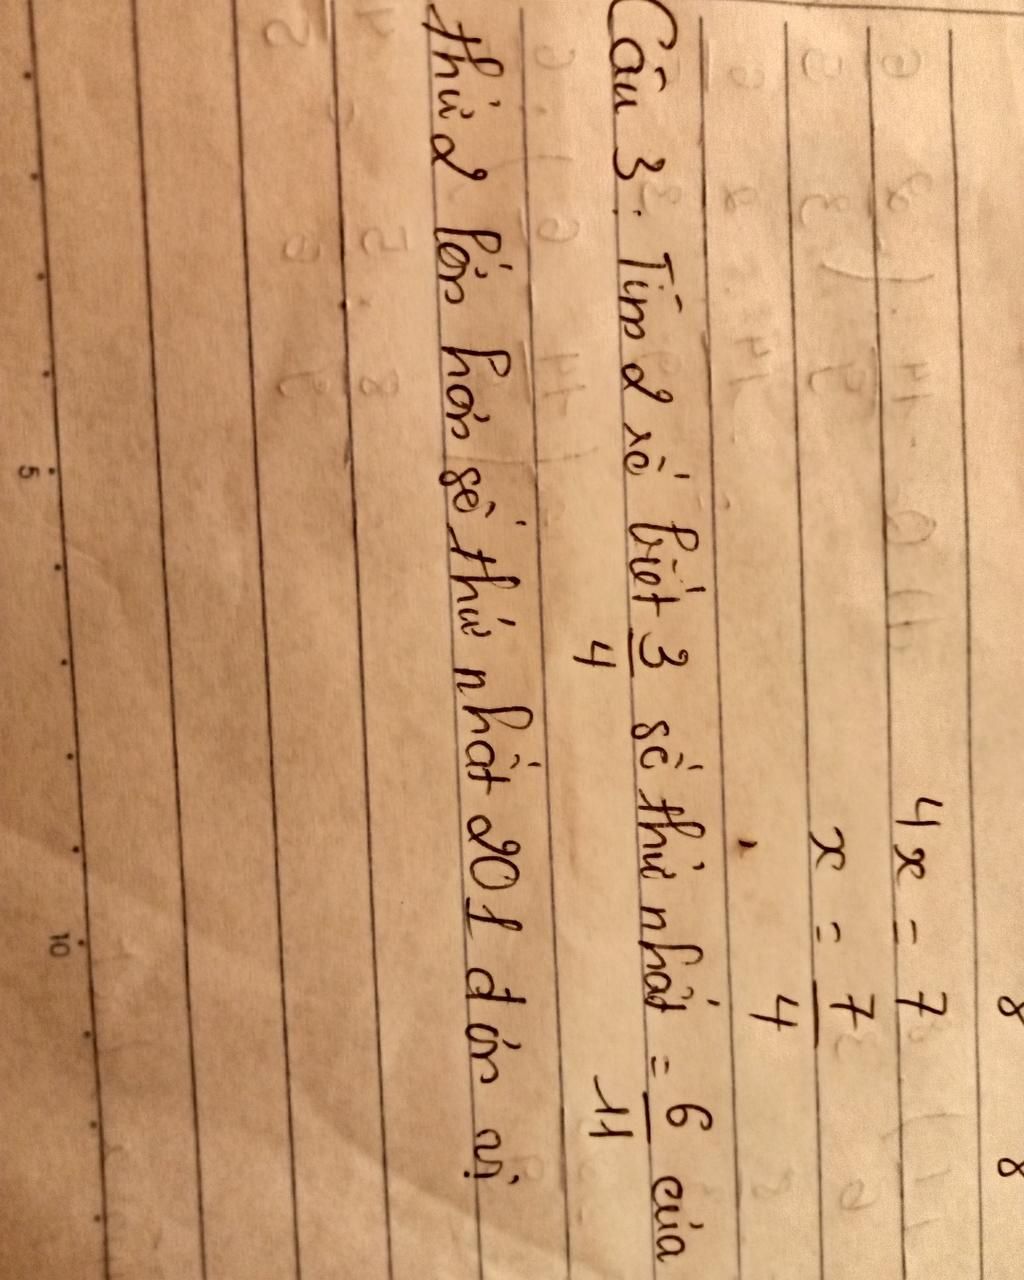 8 8
4x = 7
x = 7/4
Câu 3: Tìm 2 số biết 3/4 số thứ nhất = 6/11 của
thứ 2 lớn hơn số thứ nhất 201 đơn vị
5 10